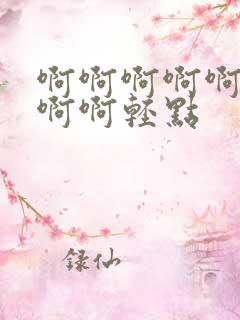 啊啊啊啊啊
啊啊轻點
録仙